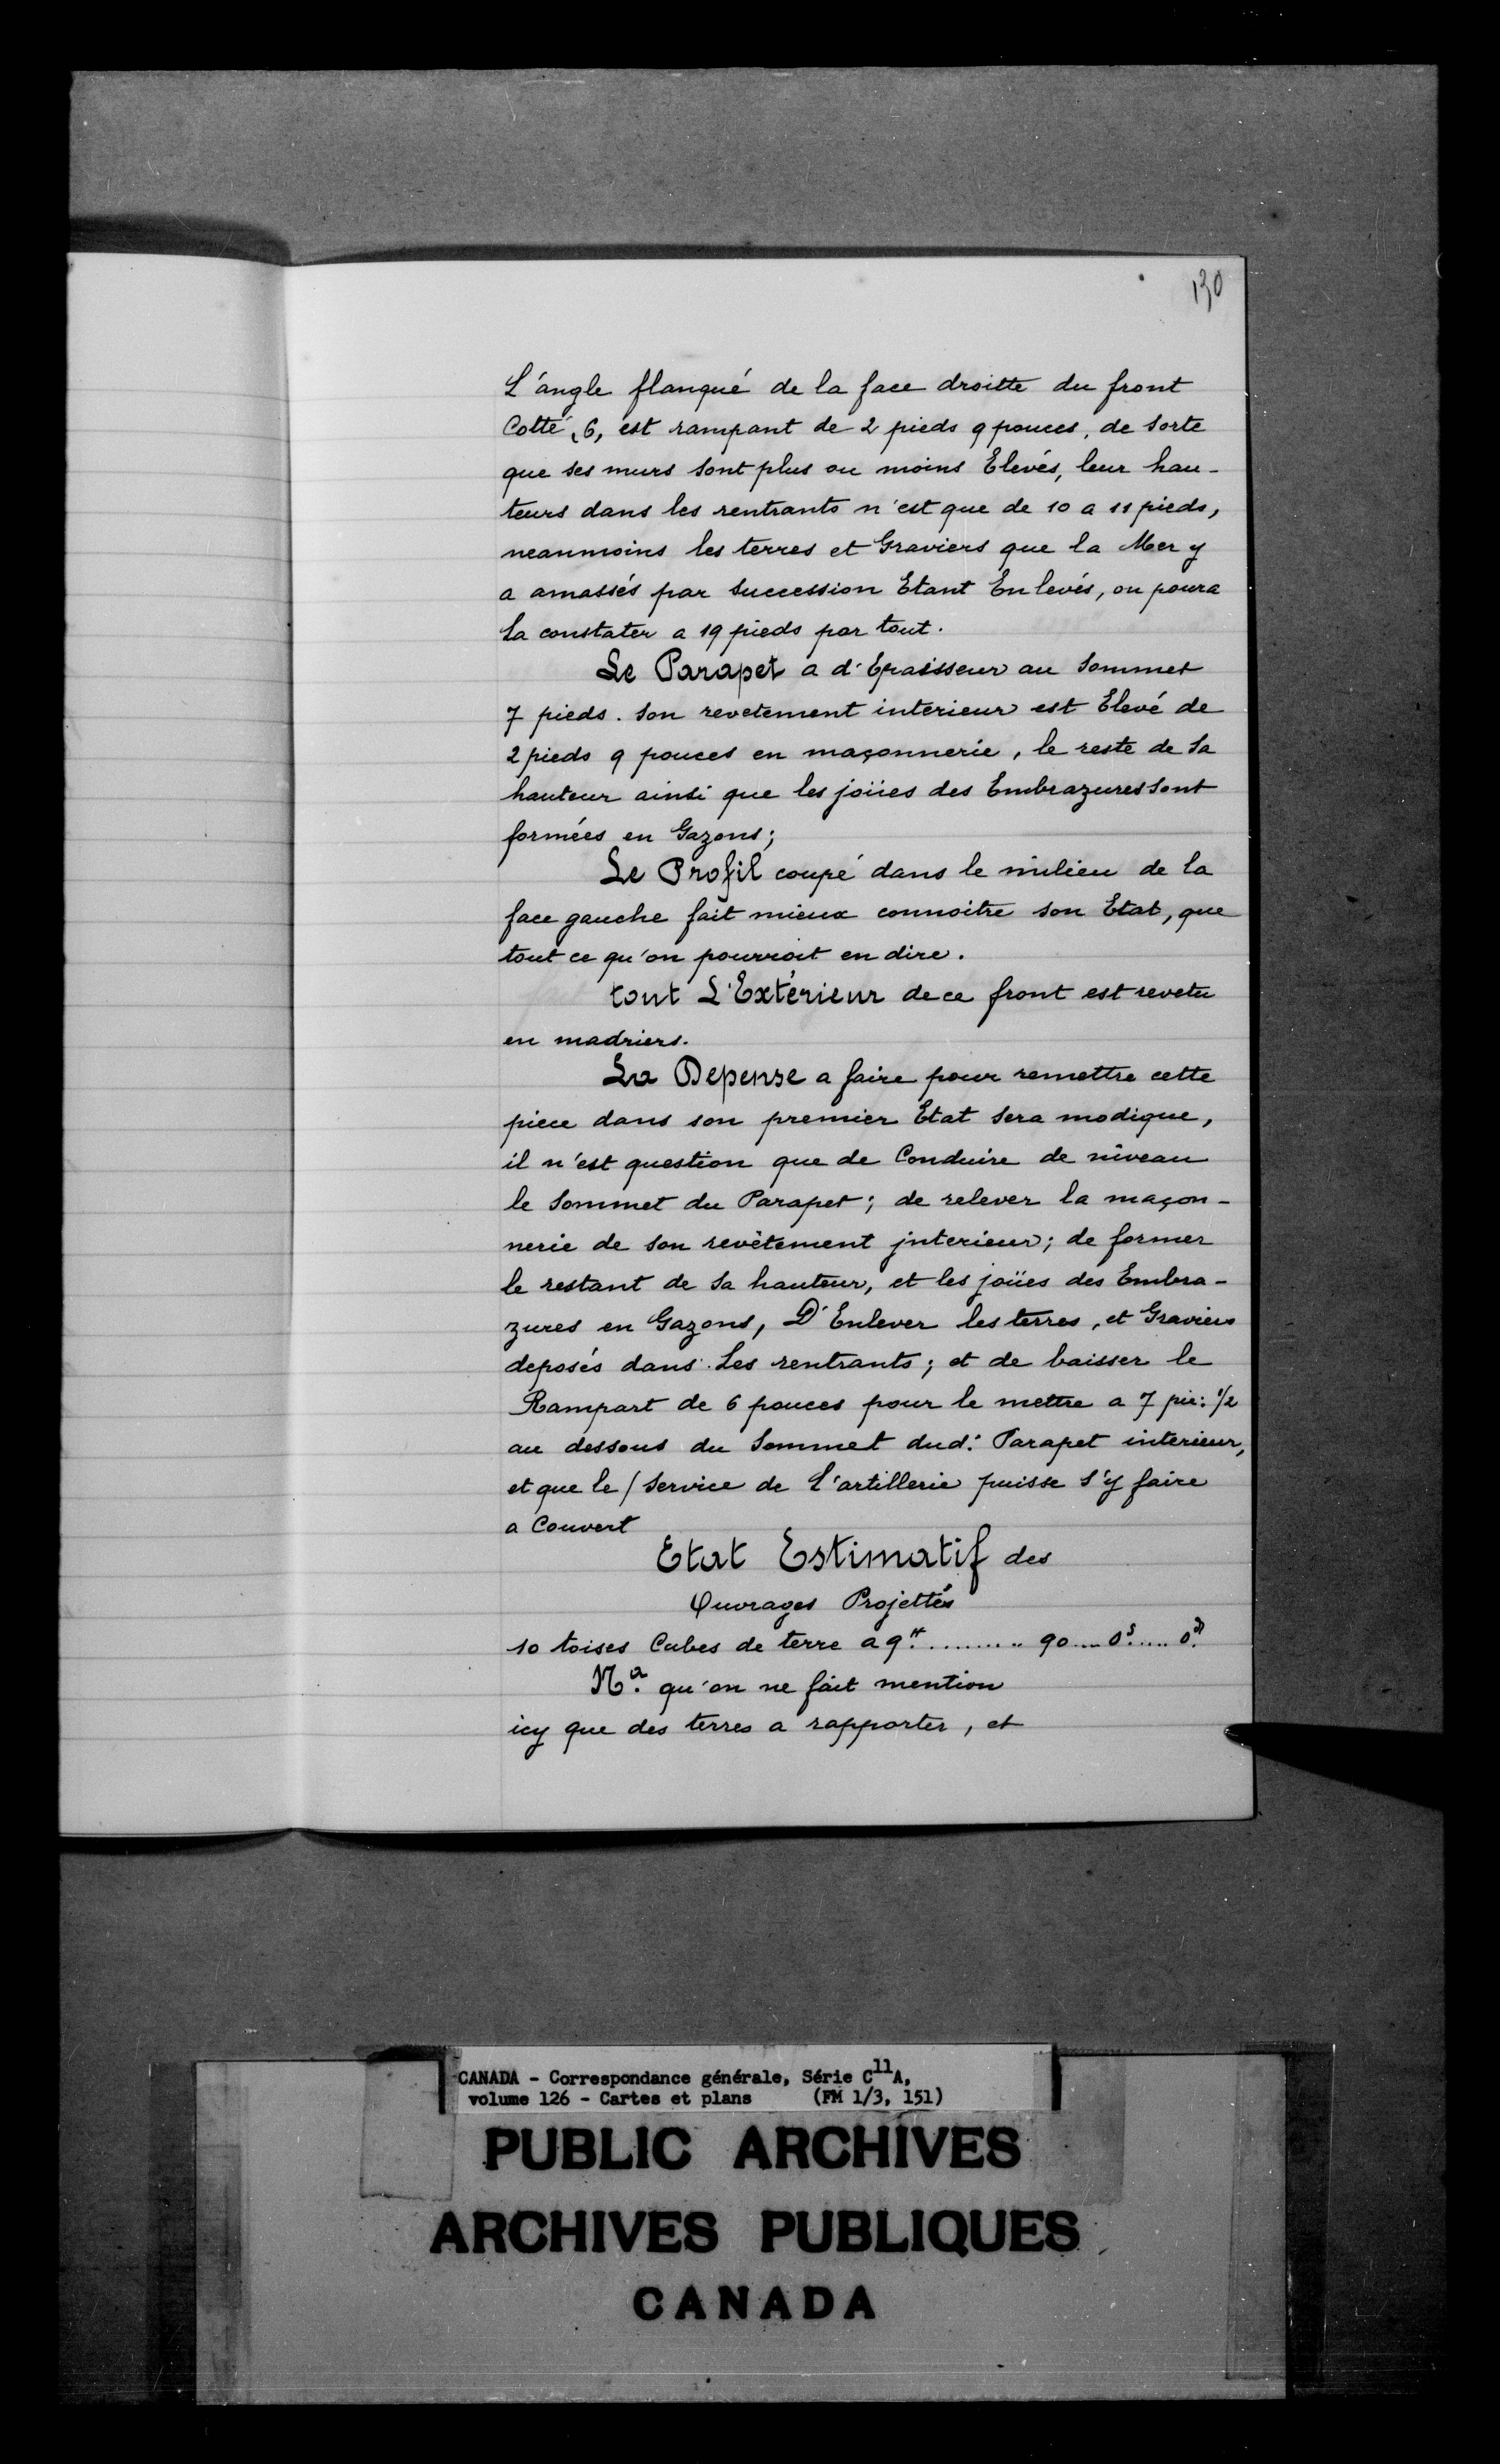 130
L'angle flanqué de la face droitte du front
Cotté, 6, est rampant de 2 pieds 9 pouces, de sorte
que ses murs sont plus ou moins Elevés, leur hau-
teurs dans les rentrants n'est que de 10 a 11 pieds,
neanmoins les terres et Graviers que la Mer y
a amassés par succession Etant Enlevés, on poura
la constater a 19 pieds par tout.
Le Parapet a d'Epaisseur au sommet
7 pieds. son revetement interieur est Elevé de
2 pieds 9 pouces en maçonnerie, le reste de sa
hauteur ainsi que les joües des Embrazures sont
formées en Gazons;
Le Profil coupé dans le milieu de la
face gauche fait mieux connoitre son Etat, que
tout ce qu'on pourroit en dire.
tout L'Extérieur de ce front est revetu
en madriers.
La Depense a faire pour remettre cette
piece dans son premier Etat sera modique,
il n'est question que de Conduire de niveau
le sommet du Parapet; de relever la maçon-
nerie de son revêtement jnterieur; de former
le restant de sa hauteur, et les joües des Embra-
zures en Gazons, D'Enlever les terres, et Graviers
deposés dans les rentrants; et de baisser le
Rampart de 6 pouces pour le mettre a 7 pie: 1/2
au dessous du sommet dud: Parapet interieur,
et que le / service de l'artillerie puisse s'y faire
a Couvert
Etat Estimatif des
Ouvrages Projettés
10 toises Cubes de terre a 9#. ......... 90 .... 0s. .... 0d.
Na. qu'on ne fait mention
icy que des terres a rapporter, et
CANADA - Correspondance générale, Série C11A,
volume 126 - Cartes et plans (FM 1/3, 151)
PUBLIC ARCHIVES
ARCHIVES PUBLIQUES
CANADA